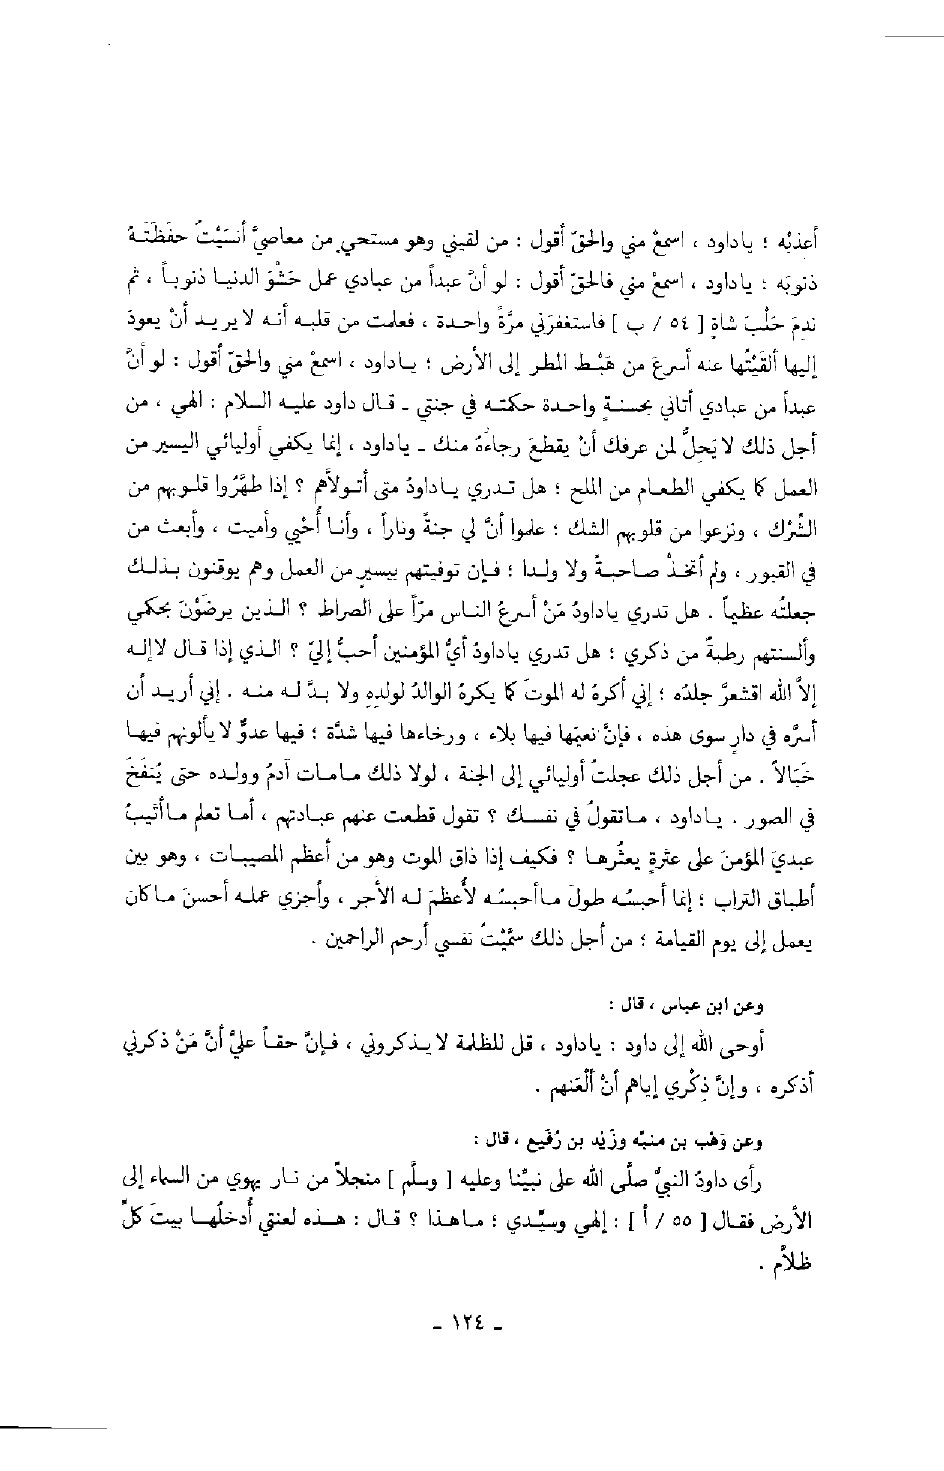 أعذبْه ؛ ياداود ، اسمعْ مني والحقّ أقول : من لقيني وهو مستحيٍ من معاصيَّ أنسَيْتُ حفَظَتَه
ذنوبَه ؛ ياداود ، اسمعْ مني فالحقّ أقول : لو أنَّ عبداً من عبادي عمل حَشْوَ الدنيا ذنوباً ، ثم
ندمَ حَلْبَ شاةٍ [ ٥٤ / ب ] فاستغفرَني مرَّةً واحدة ، فعلمت من قلبه أنه لا يريد أنْ يعودَ
إليها ألقَيْتُها عنه أسرعَ من هَبْط المطر إلى الأرض ؛ ياداود ، اسمعْ مني والحقّ أقول : لو أنَّ
عبداً من عبادي أتاني بحسنةٍ واحدة حكمته في جنتي ـ قال داود عليه السلام : الهي ، من
أجل ذلك لا يَحِلُّ لمن عرفك أنْ يقطعَ رجاءَهُ منك ـ ياداود ، إنما يكفي أوليائي اليسير من
العمل كما يكفي الطعام من الملح ؛ هل تدري ياداودُ متى أتولاَّهم ؟ إذا طهَّرُوا قلوبهم من
الشِّرْك ، ونزعوا من قلوبهم الشك ؛ علموا أنَّ لي جنةً وناراً ، وأنا أُحْيي وأميت ، وأبعث من
في القبور ، ولم أتخذْ صاحبةً ولا ولدا ؛ فإن توفيتهم بيسيرٍ من العمل وهم يوقنون بذلك
جعلتُه عظيماً . هل تدري ياداودُ مَنْ أسرعُ الناس مرّاً على الصراط ؟ الذين يرضَوْنَ بحكمي
وألسنتهم رطبةٌ من ذكري ؛ هل تدري ياداودُ أيُّ المؤمنين أحبُّ إليّ ؟ الذي إذا قال لاإله
إلاَّ الله اقشعرَّ جلدُه ؛ إني أكرهُ له الموتَ كما يكرهُ الوالدُ لولدِهِ ولا بدَّ له منه . إني أريد أن
أسرَّه في دارٍ سوى هذه ، فإنَّ نعيمَها فيها بلاء ، ورخاءها فيها شدَّة ؛ فيها عدوٌّ لا يألونهم فيها
خَبَالاً . من أجل ذلك عجلتُ أوليائي إلى الجنة ، لولا ذلك مامات آدمُ وولده حتى يُنفَخَ
في الصور . ياداود ، ماتقولُ في نفسك ؟ تقول قطعت عنهم عبادتهم ، أما تعلم ماأثيبُ
عبديَ المؤمنَ على عثرةٍ يعثُرها ؟ فكيف إذا ذاق الموت وهو من أعظم المصيبات ، وهو بين
أطباق التراب ؛ إنما أحبسُه طولَ ماأحبسُه لأُعظمَ له الأجر ، وأجزي عمله أحسنَ ماكان
يعمل إلى يوم القيامة ؛ من أجل ذلك سمَّيْتُ نفسي أرحم الراحمين .
وعن ابن عباس ، قال :
أوحى الله إلى داود : ياداود ، قل للظلمة لا يذكروني ، فإنَّ حقاً عليَّ أنَّ مَنْ ذكرني
أذكره ، وإنَّ ذِكْري إياهم أنْ ألْعَنهم .
وعن وَهْب بن منبّه وزَيْد بن رُفَيع ، قال :
رأى داودُ النبيُّ صلَّى الله على نبيِّنا وعليه [ وسلَّم ] منجلاً من نار يهوي من السماء إلى
الأرض فقال [ ٥٥ / أ ] : إلهي وسيِّدي ؛ ماهذا ؟ قال : هذه لعنتي أُدخلُها بيتَ كلِّ
ظلاَّم .
ـ ١٢٤ ـ